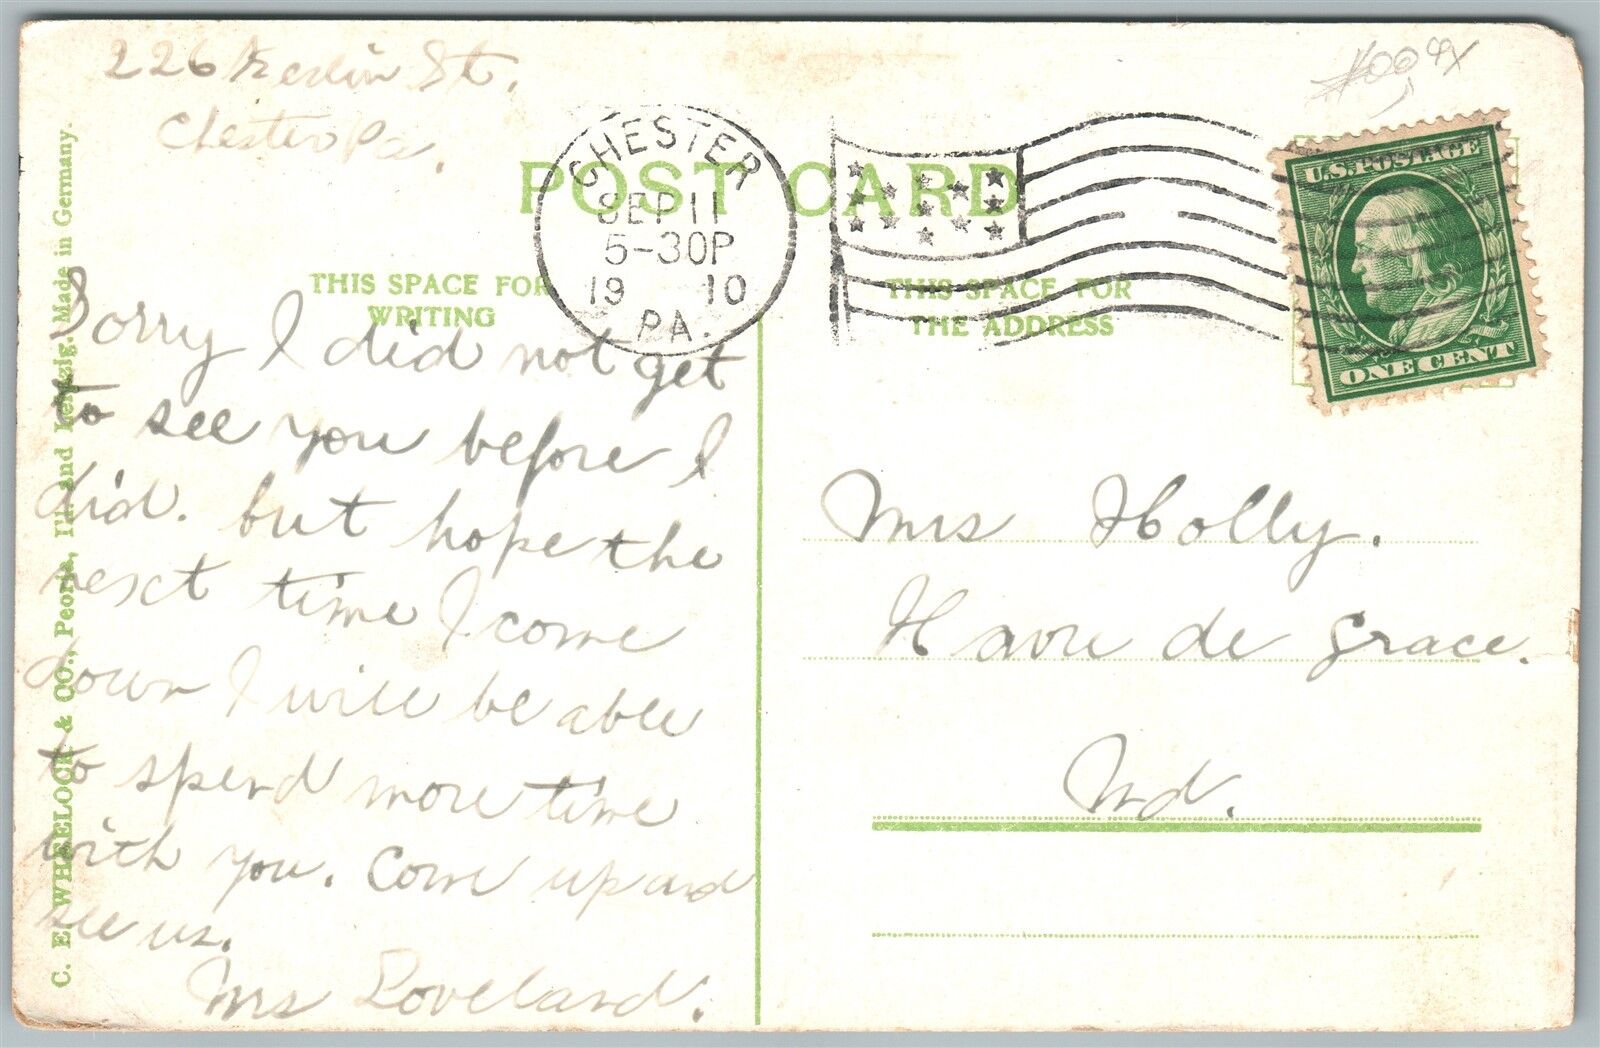 226 Kerlin St.
Chester Pa.
POST CARD
CHESTER
SEP 11
5-30P
19 10
PA.
U.S. POSTAGE
ONE CENT
THIS SPACE FOR
WRITING
THIS SPACE FOR
THE ADDRESS
Sorry I did not get
to see you before I
did. but hope the
next time I come
down I will be able
to spend more time
with you. Come up and
see us.
Mrs Loveland.
Mrs Holly.
Havre de Grace.
Md.
C. E. WHEELOCK & CO., Peoria, Ill. and Leipzig. Made in Germany.